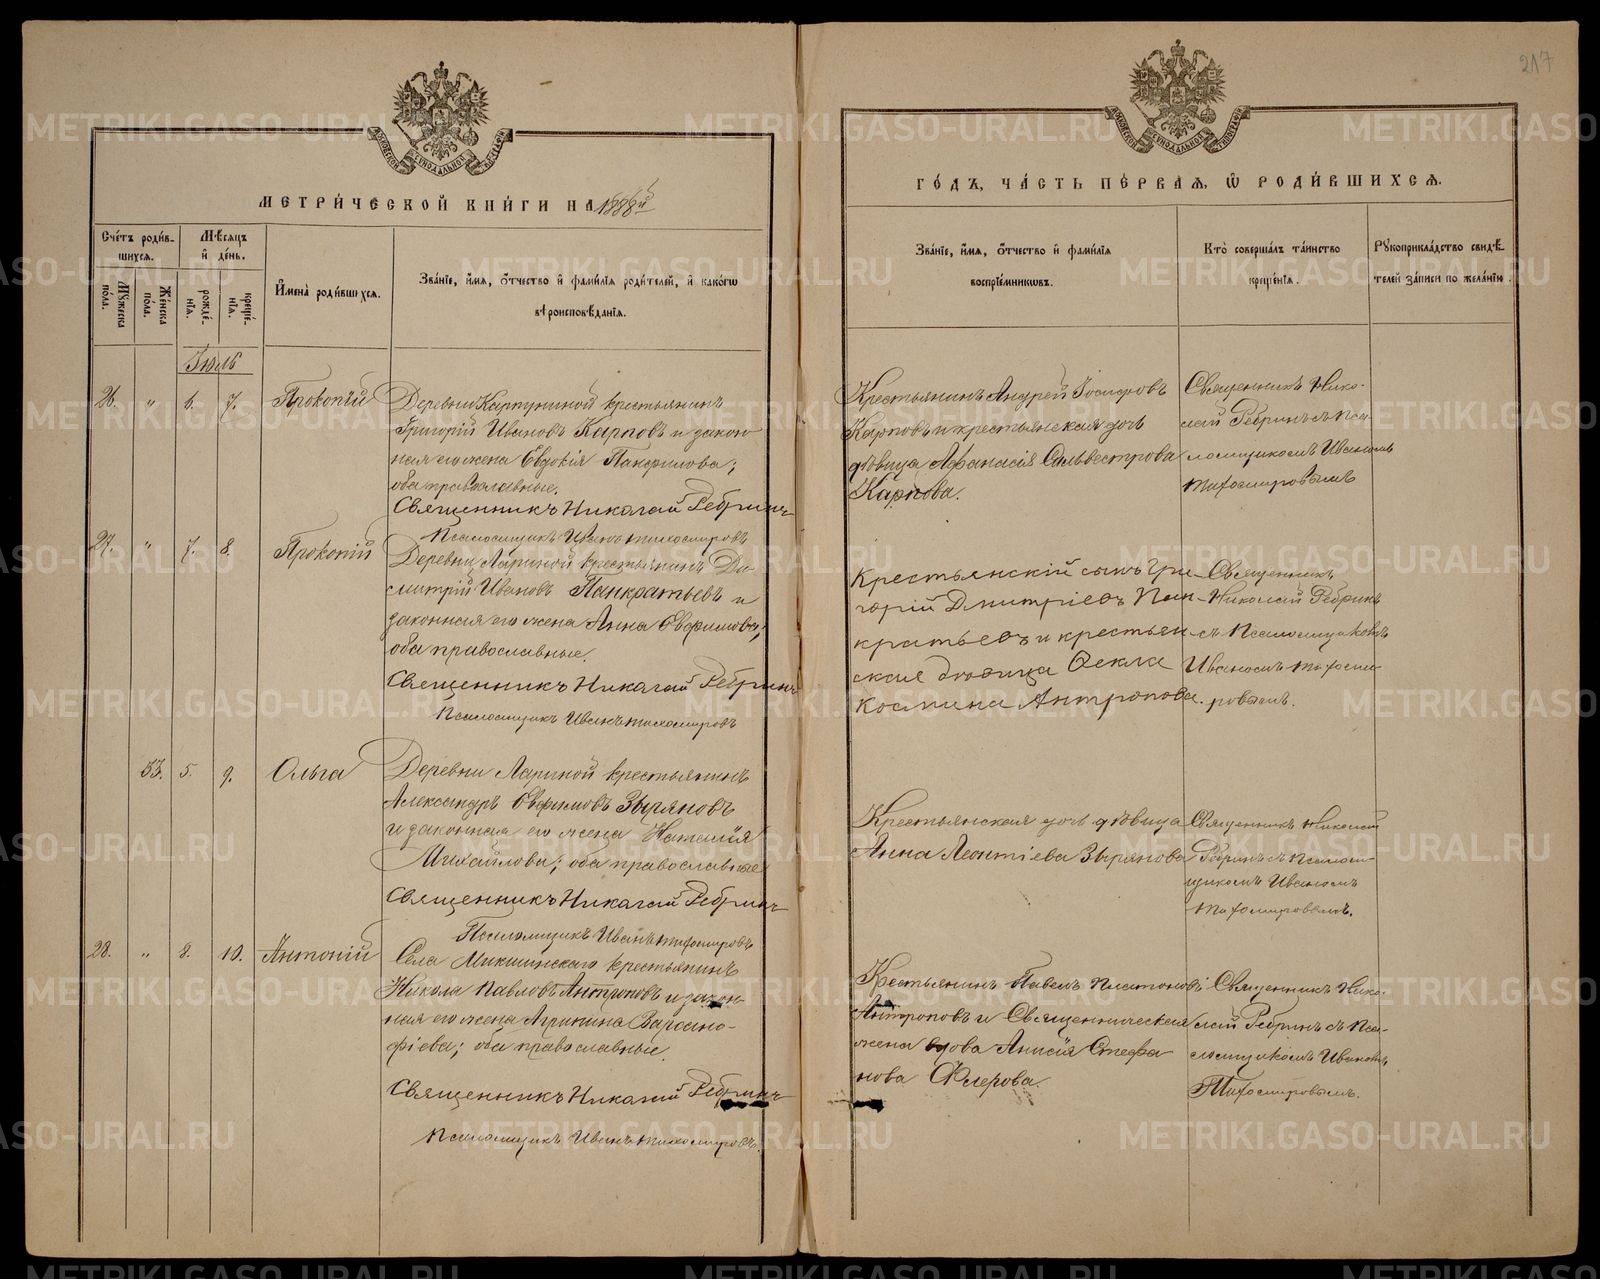 217
МЕТРИ́ЧЕСКОЙ КНИ́ГИ НА 1888й
ГО́ДЪ, ЧА́СТЬ ПЕ́РВАЯ, Ѿ РОДИ́ВШИХСЯ.
Сче́тъ роди́в-
шихся.
Му́жеска
по́ла.
Же́нска
по́ла.
Мѣ́сяцъ
и́ де́нь.
рожде́-
нїя.
креще́-
нїя.
И́мена̀ роди́вшихся.
Зва́нїе, и́мя, о́тчество и́ фами́лїя роди́телей, и́ како́гѡ
вѣроисповѣ́данїя.
Зва́нїе, и́мя, о́тчество и́ фами́лїя
воспрїе́мниковъ.
Кто̀ соверша́лъ та́инство
креще́нїя.
Рꙋкоприкла́дство свидѣ́-
телей за́писи по жела́нїю.
Іюль
26. " 6. 7. Прокопій
Деревни Карпуниной крестьянинъ
Григорій Ивановъ Карповъ и закон-
ная его жена Евдокія Панфилова;
оба православные.
Священникъ Николай Ребринъ
Псаломщикъ Иванъ Тихомировъ
Крестьянинъ Андрей Іосифовъ
Карповъ и крестьянская дочь
дѣвица Афанасія Сильвестрова
Карпова.
Священникъ Нико-
лай Ребринъ съ Пса-
ломщикомъ Иваномъ
Тихомировымъ
27. " 7. 8. Прокопій
Деревни Лариной крестьянинъ Ди-
митрій Ивановъ Панкратьевъ и
законная его жена Анна Евфимова;
оба православные.
Священникъ Николай Ребринъ
Псаломщикъ Иванъ Тихомировъ
Крестьянскій сынъ Гри-
горій Дмитріевъ Пан-
кратьевъ и крестьян-
ская дѣвица Ѳекла
Космина Антропова.
Священникъ
Николай Ребринъ
съ Псаломщикомъ
Иваномъ Тихоми-
ровымъ.
53. 5. 9. Ольга
Деревни Лариной крестьянинъ
Александръ Евфимовъ Зыряновъ
и законная его жена Наталія
Михайлова; оба православные
Священникъ Николай Ребринъ
Псаломщикъ Иванъ Тихомировъ
Крестьянская дочь дѣвица
Анна Леонтіева Зырянова
Священникъ Николай
Ребринъ съ Псалом-
щикомъ Иваномъ
Тихомировымъ.
28. " 8. 10. Антоній
Села Микшинскаго крестьянинъ
Никола Павловъ Антроповъ и закон-
ная его жена Агрипина Варсано-
фіева; оба православные.
Священникъ Николай Ребринъ
Псаломщикъ Иванъ Тихомировъ.
Крестьянинъ Павелъ Платоновъ
Антроповъ и Священническая
жена вдова Анисія Стефа
нова Флерова.
Священникъ Нико-
лай Ребринъ съ Пса-
ломщикомъ Иваномъ
Тихомировымъ.
METRIKI.GASO-URAL.RU